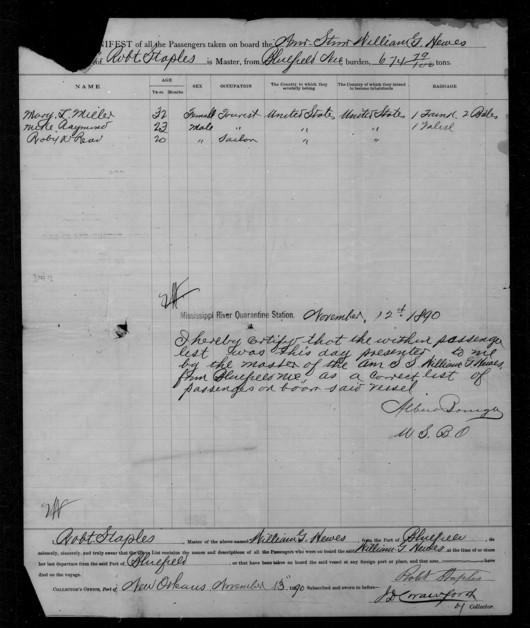 MANIFEST of all the Passengers taken on board the Am Stmr William G. Hewes
of Robt Staples is Master, from Bluefield Nic burden, 674 79/100 tons.
NAME AGE SEX OCCUPATION The Country to which they severally belong The Country to which they intend to become inhabitants BAGGAGE
Years Months
Mary L Miller 32 Female Tourist United States United States 1 Trunk 2 Bdles
Raymond 23 Male " " " 1 Valise
20 " Sailor " "
Mississippi River Quarantine Station. November, 12th 1890
I hereby certify that the within passenger
list was this day presented to me
by the master of the Am S S William G Hewes
from Bluefields Nic, as a correct list of
passengers on board said vessel
U S. B O
I, Robt Staples, Master of the above-named William G. Hewes, from the Port of Bluefield, do
solemnly, sincerely, and truly swear that the above List contains the names and descriptions of all the Passengers who were on board the said William G Hewes, at the time of or since
her last departure from the said Port of Bluefield, or that have been taken on board the said vessel at any foreign port or place, and that none have
died on the voyage. Robt Staples
COLLECTOR'S OFFICE, Port of New Orleans November 13th 1890 Subscribed and sworn to before
Crawford
Dy Collector.